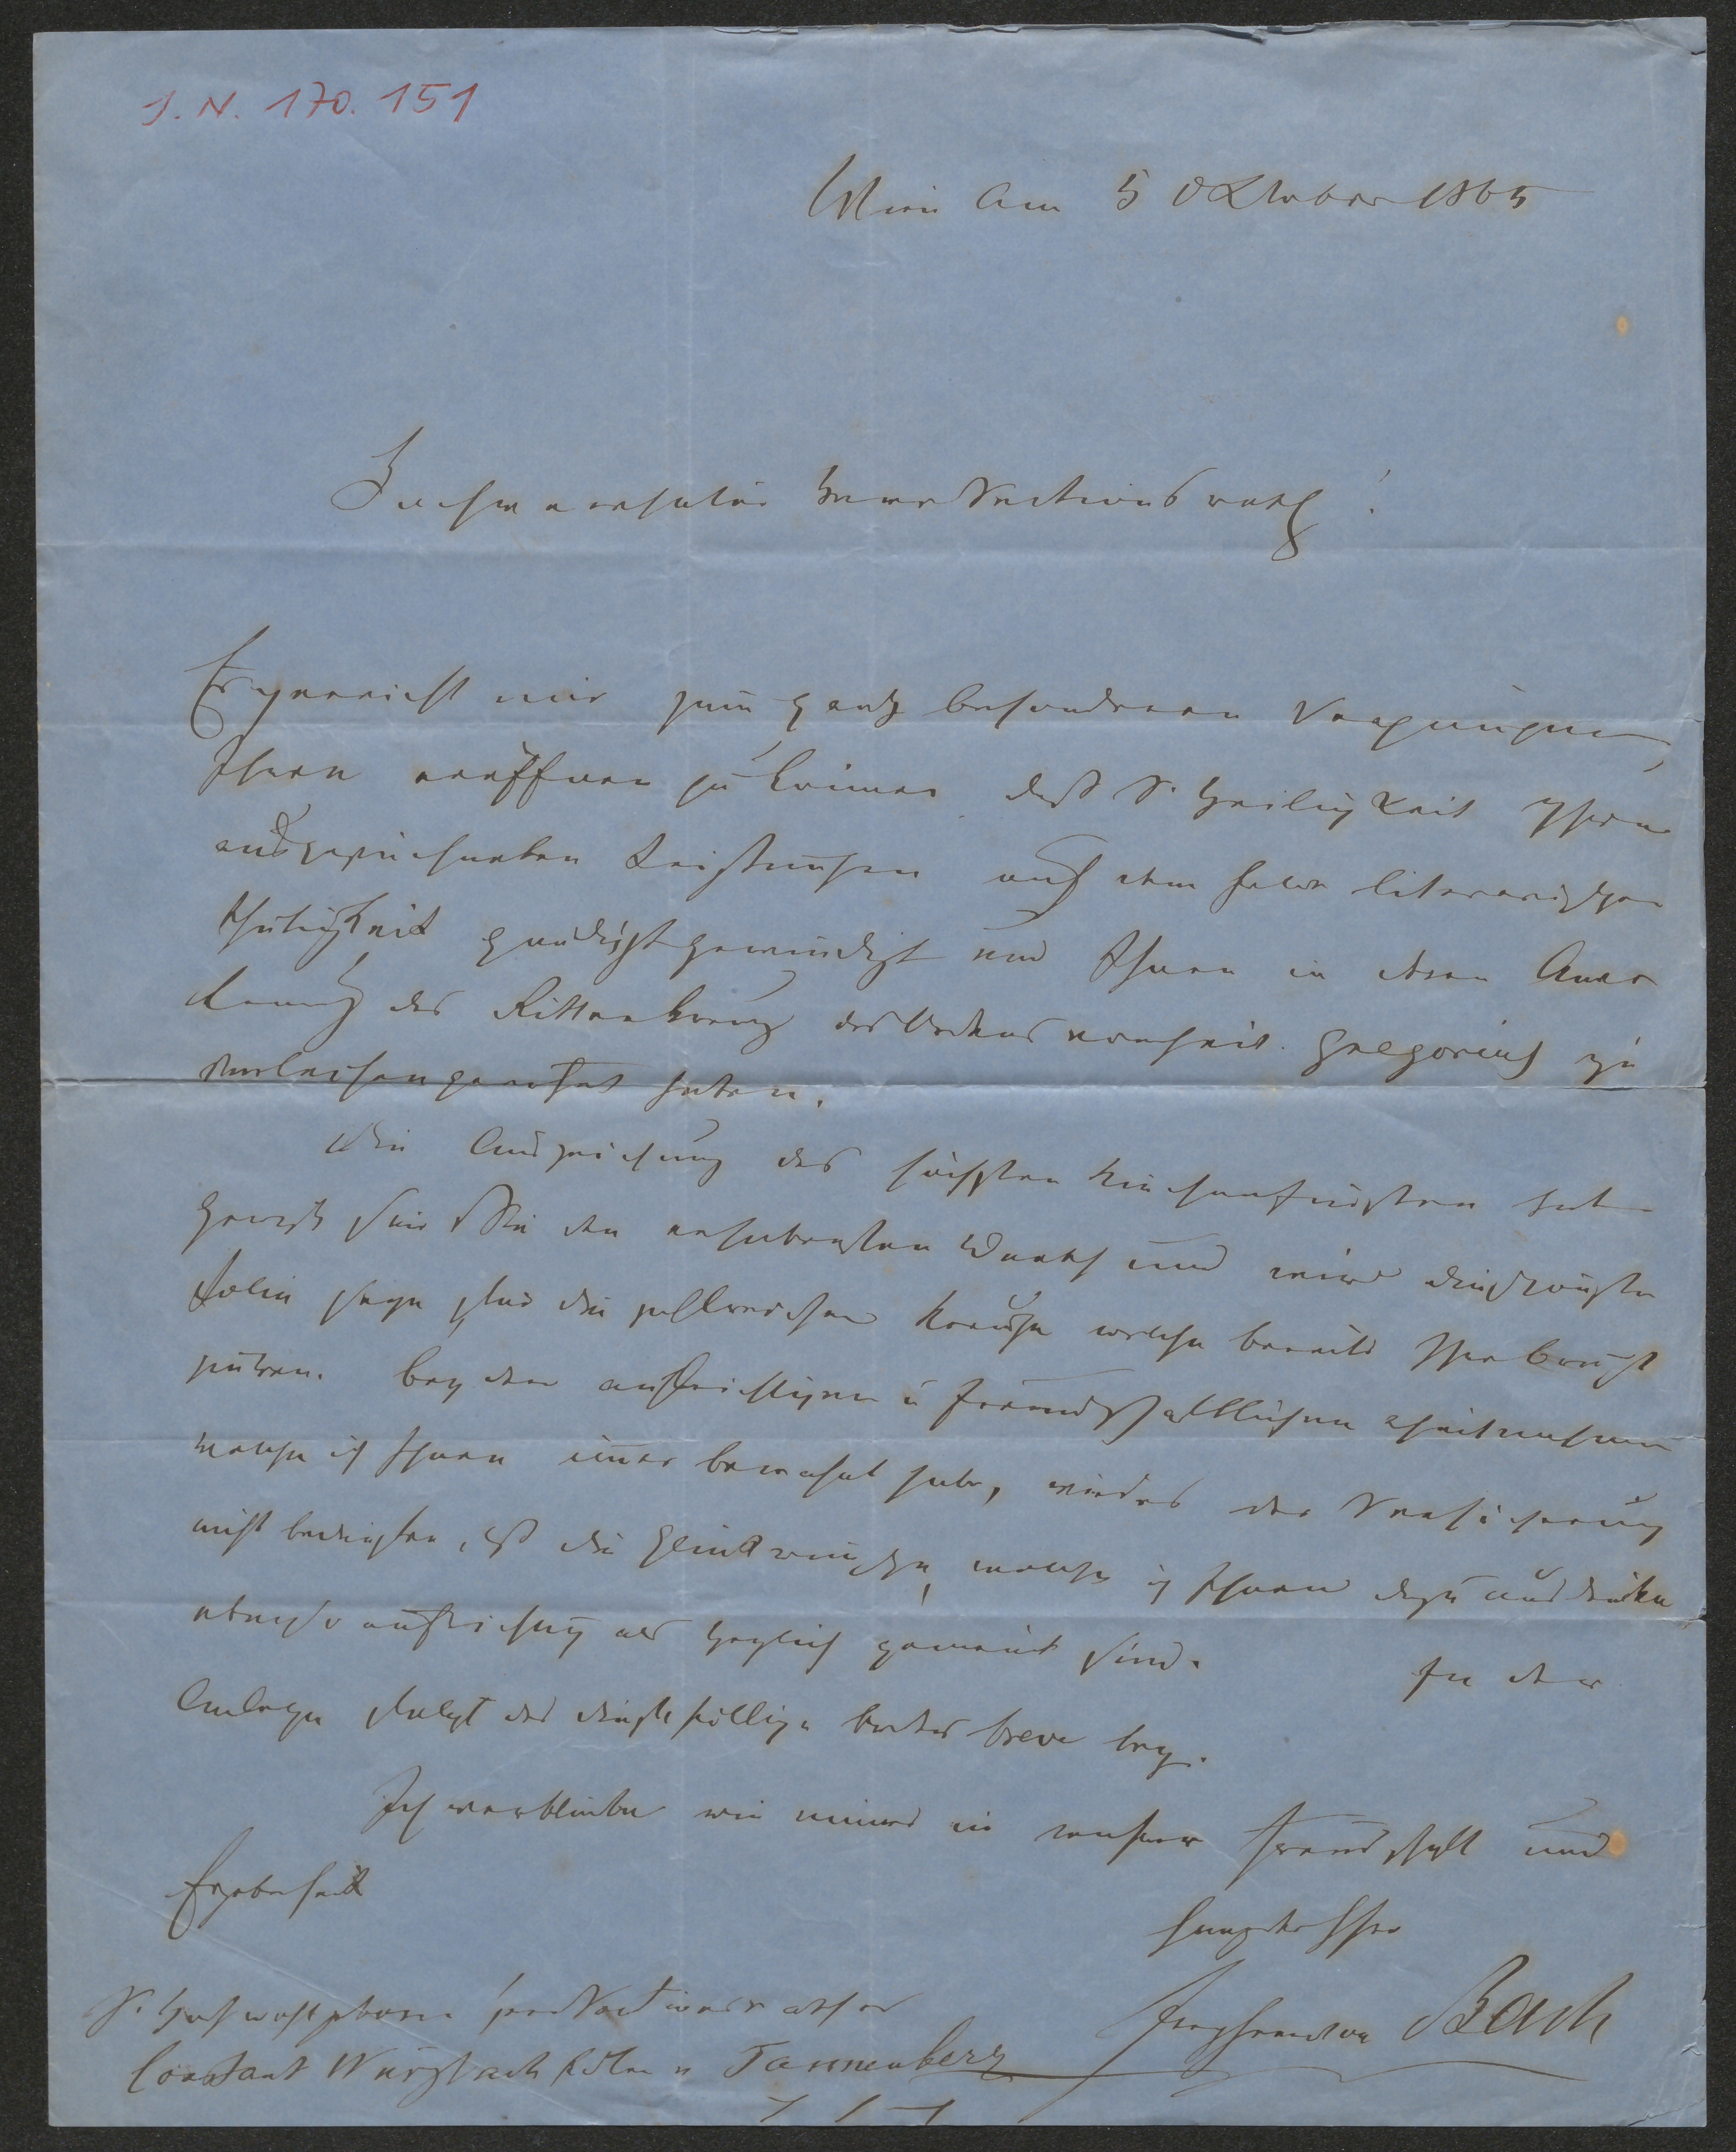 J. N. 170.151
Wien am 5 Oktober 1865
Hochverehrter Herr Sectionsrath!
Es gereicht mir zum ganz besonderen Vergnügen,
Ihnen eröffnen zu können daß S. Heiligkeit Ihre
ausgezeichneten Leistungen auf dem Felde literarischer
Thätigkeit gnädigst gewürdigt und Ihnen in deren Aner
kennung das Ritterkreuz des Ordens vom heil. Gregorius zu
verleihen geruht haben.
Die Auszeichnung des höchsten Kirchenfürsten hat
gewiß für Sie den erhabensten Werth und wird die schönste
Folie seyn für die zahlreichen Kreuze welche bereits Ihre Brust
zieren. Bey der aufrichtigen u freundschaftlichen Theilnahme
welche ich Ihnen immer bewahrt habe, wird es der Versicherung
nicht bedürfen, daß die Glückwünsche, welche ich Ihnen dazu ausdrücke
ebenso aufrichtig als herzlich gemeint sind. In der
Anlage folgt das dießfällige Breve bey.
Ich verbleibe wie immer in wahrer Freundschaft und
Ergebenheit
Ihr
S. Hochwohlgeboren Herr Sectionsrath
Bach
Constant Wurzbach Edlen v Tannenberg